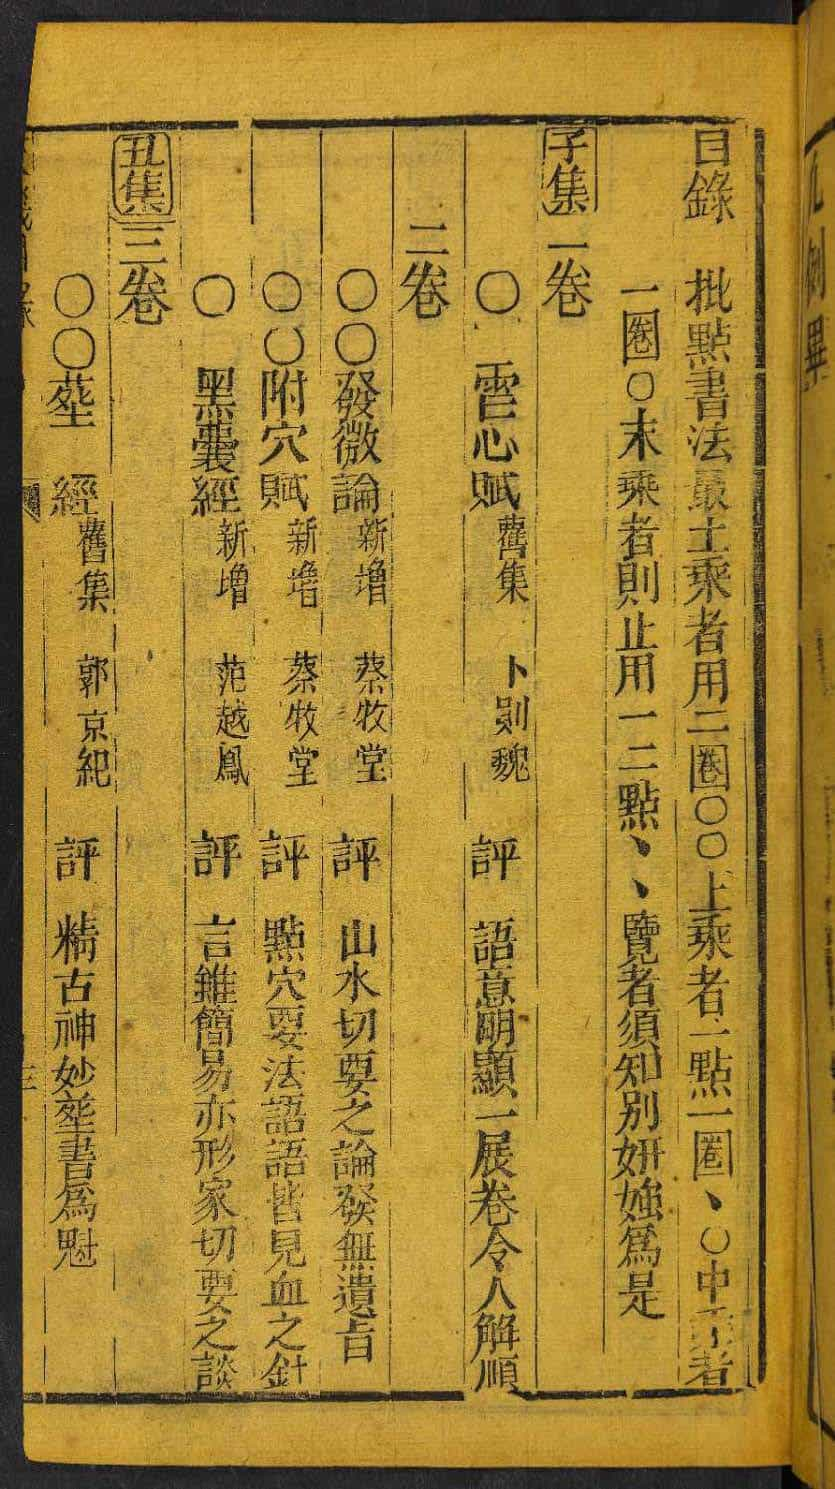 目錄 批點書法最上乘者用二圈〇〇上乘者一點一圈丶〇中乘者
一圈〇末乘者則止用一二點丶丶覽者須知別妍媸為是
子集一卷
〇 雪心賦 舊集 卜則巍 評 語意明顯一展卷令人解順
二卷
〇〇發微論 新增 蔡牧堂 評 山水切要之論發無遺旨
〇〇附穴賦 新增 蔡牧堂 評 點穴要法語語皆見血之針
〇 黑囊經 新增 范越鳳 評 言雖簡易亦形家切要之談
丑集三卷
〇〇塟 經 舊集 郭京紀 評 精古神妙塟書為魁
凡例畢